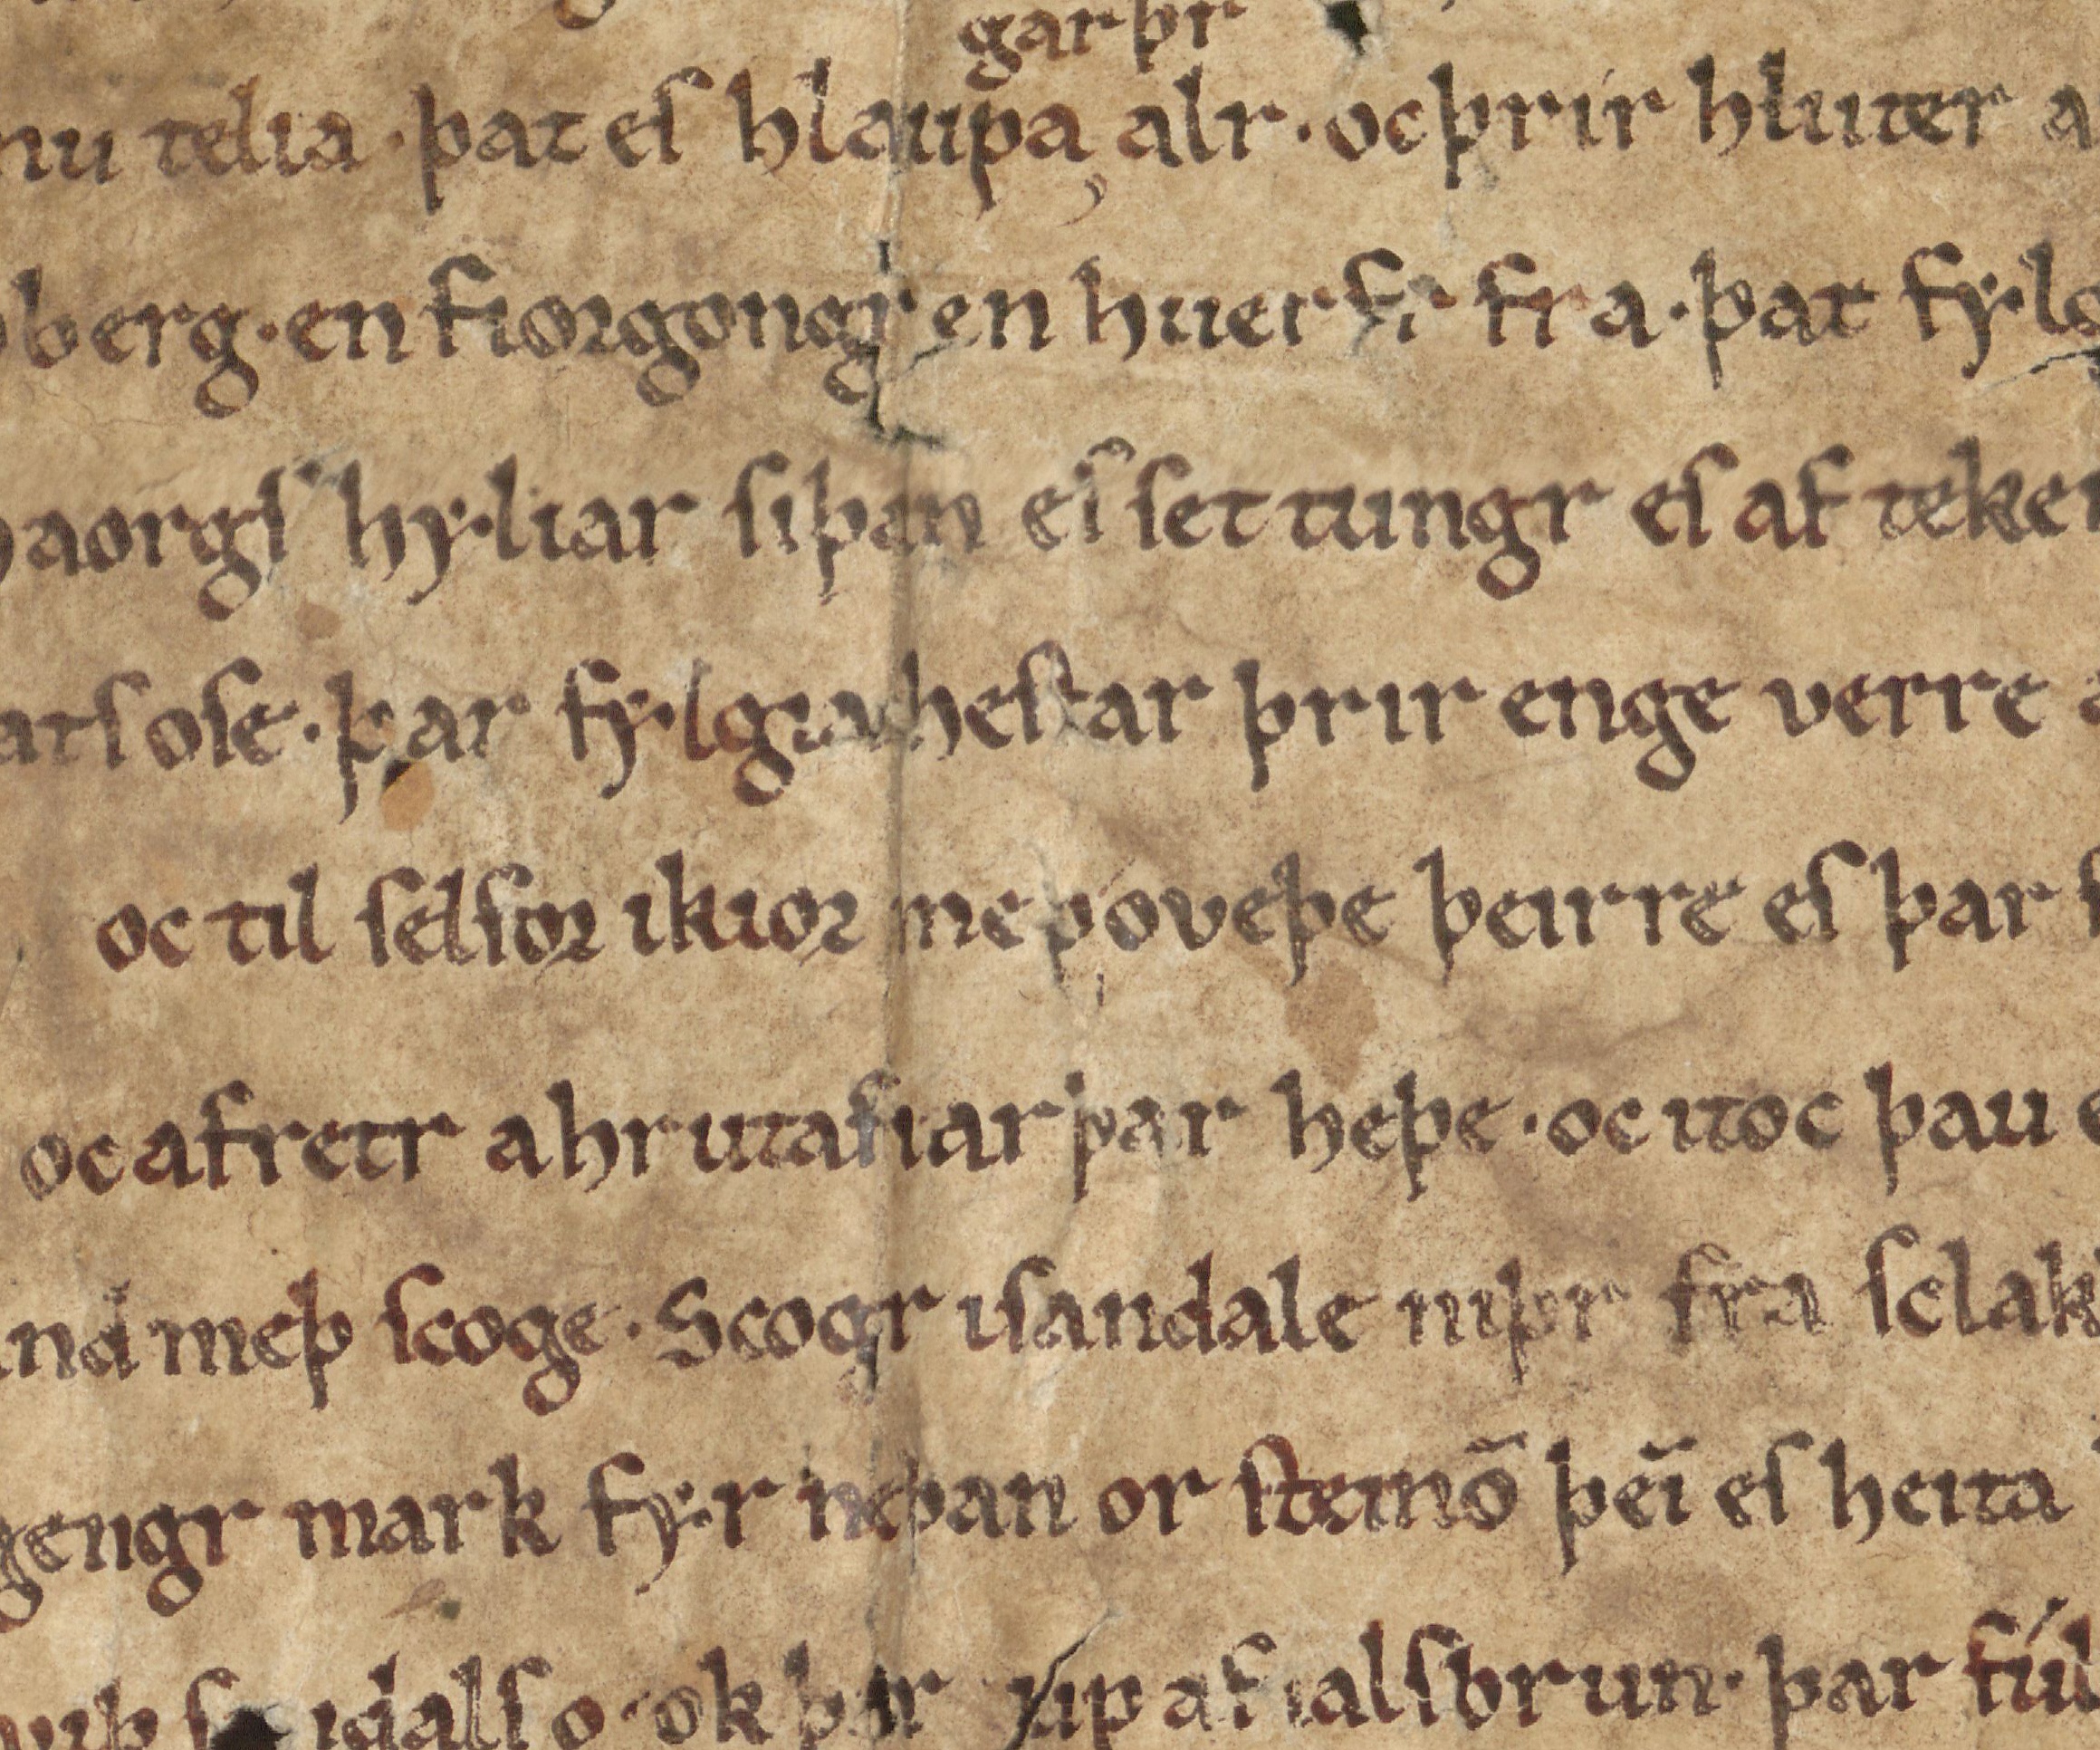 garþr
nu telia · þat eſ hlaupa alr · oc þrir hluter a
berg · en fiorgongr en huerfr fra · þat fẏlg
haorgſ hẏliar ſiþan eſ ſettungr eſ af teken
atſ oſe · þar fẏlgia heſtar þrir enge verre
oc til ſelfꝍꝛ i kioꝛ meþ oveþe þeirre eſ þar
oc afretr a hrutafiar þar heþe · oc i toc þau
and meþ ſcoge · Scogr i ſandale niþr fra ſclak
gengr mark fẏr neþan or ſteinō þeī eſ heita
viþ dalſ o · ok þar up a fialſbrun · þar fúl